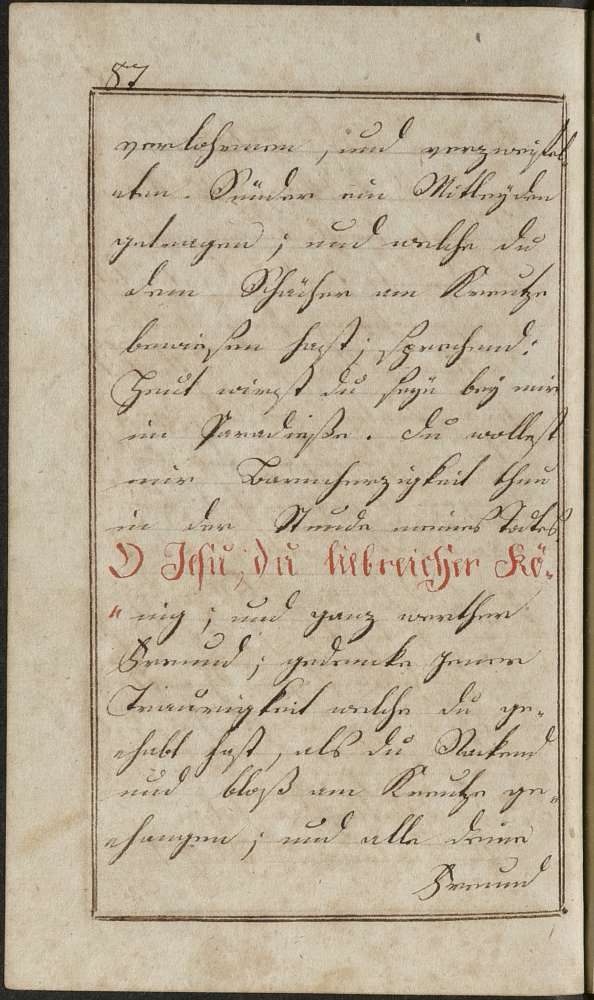 87
verlohrnen, und verzweifel-
ten Sünder ein Mitleyden
getragen; und welche du
dem Schächer am Kreutze
bewiesen hast; sprechend:
Heut wirst du seyn bey mir
im Paradieße. du wollest
mir Barmherzigkeit thun
in der Stunde meines Todtes
O Jesu, du liebreicher Kö-
"nig; und ganz werther
Freund; gedencke jener
Traurigkeit welche du ge-
habt hast, als du Nackend
und bloß am Kreutze ge-
hangen; und alle deine
Freund